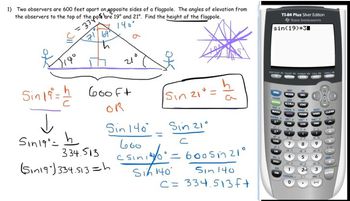 1) Two observers are 600 feet apart on opposite sides of a flagpole. The angles of elevation from
the observers to the top of the pole are 19° and 21°. Find the height of the flagpole.
140°
71° 69°
c
a
h
19°
21°
600 ft
Sin 19° = h/c
OR
Sin 21° = h/a
Sin 19° = h/334.513
(Sin 19°) 334.513 = h
Sin 140°/600 = Sin 21°/c
c sin 140°/Sin 140 = 600 sin 21°/Sin 140
c = 334.513 ft
TI-84 Plus Silver Edition
Texas Instruments
sin(19)*3